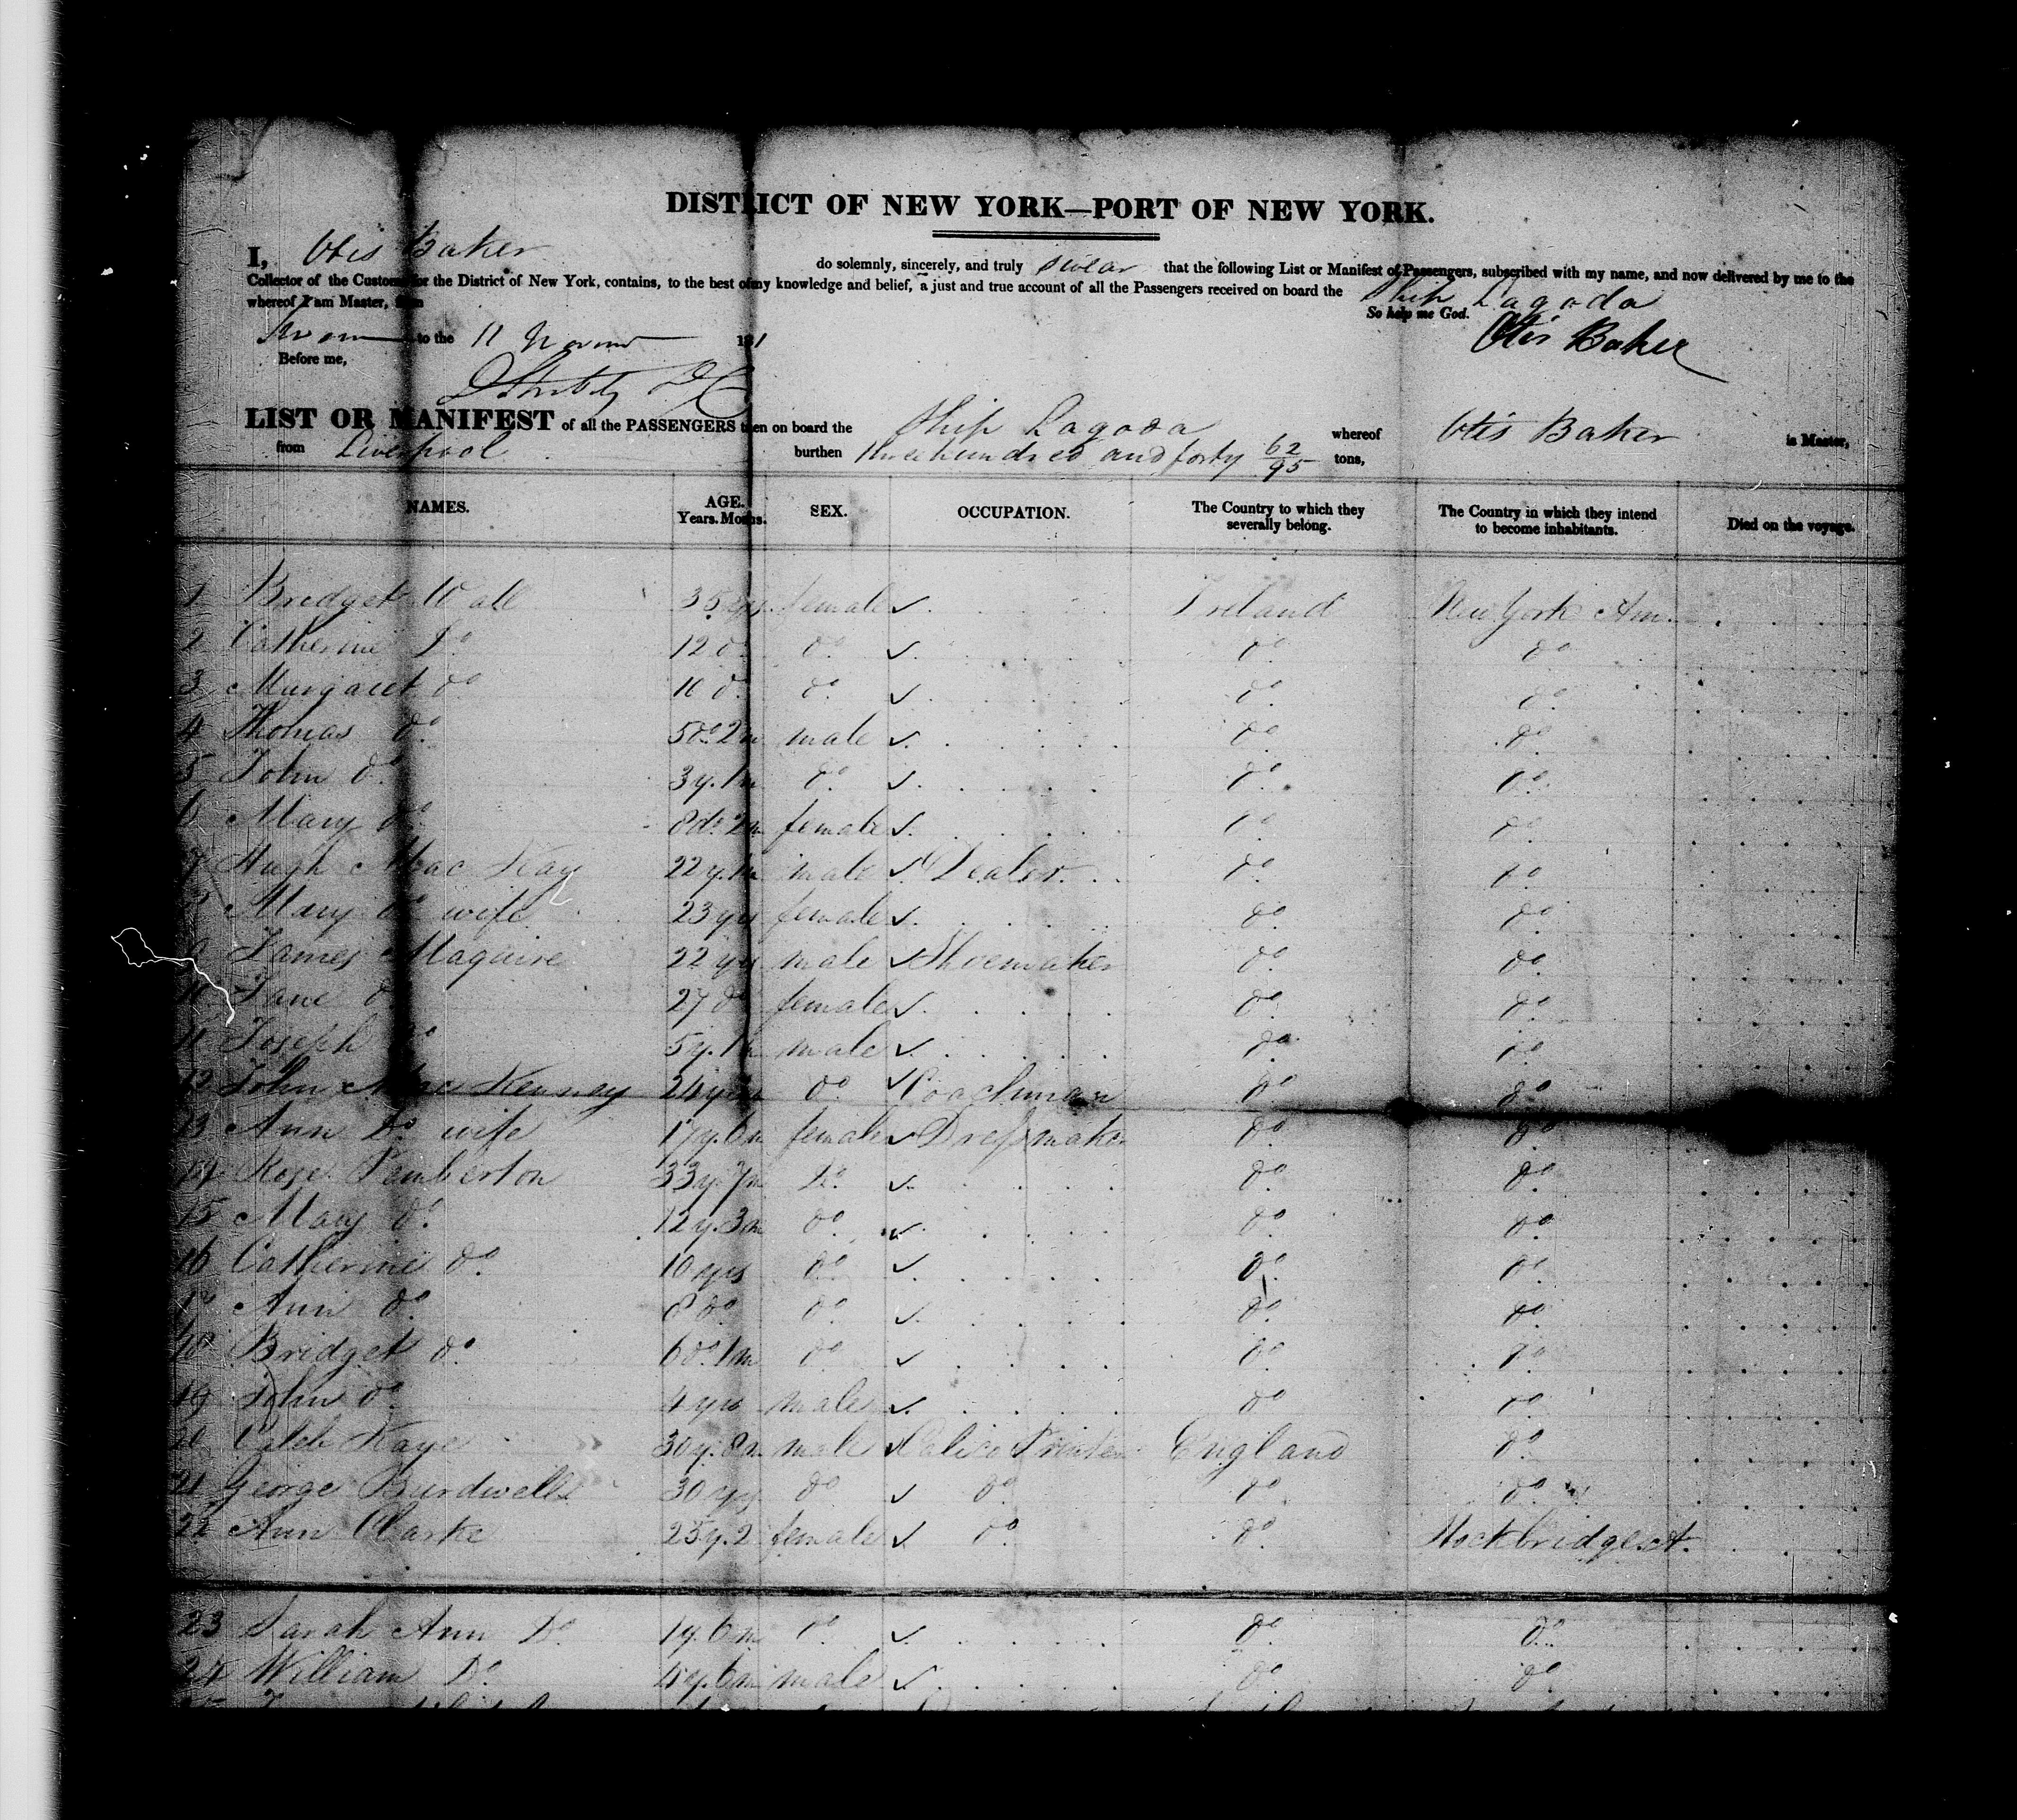 DISTRICT OF NEW YORK—PORT OF NEW YORK.
I, Otis Baker do solemnly, sincerely, and truly swear that the following List or Manifest of Passengers, subscribed with my name, and now delivered by me to the
Collector of the Customs for the District of New York, contains, to the best of my knowledge and belief, a just and true account of all the Passengers received on board the Ship Lagoda
whereof I am Master, from
So help me God.
to the 11
Otis Baker
Before me,
LIST OR MANIFEST of all the PASSENGERS taken on board the Ship Lagoda whereof Otis Baker is Master,
from Liverpool burthen three hundred and forty 62/95 tons,
NAMES. AGE. Years. Months. SEX. OCCUPATION. The Country to which they severally belong. The Country in which they intend to become inhabitants. Died on the voyage.
1 Bridget Wall 35 female ✓ Ireland New York Am.
2 Catherine Do 12 do do ✓ do do
3 Margaret do 10 do do ✓ do do
4 Thomas do 5 do 2m male ✓ do do
5 John do 3y. 1m do ✓ do do
6 Mary do 8 do 2m female ✓ do do
7 Hugh Mac Kay 22y. 1m male ✓ Dealer do do
8 Mary do wife 23 female ✓ do do
9 James Maguire 22 male ✓ Shoemaker do do
10 Jane do 27 do female ✓ do do
11 Joseph do 5y. male ✓ do do
12 John Mac Kenney 24 do ✓ Coachman do do
13 Ann Do wife 17y. 6m female ✓ Dressmaker do do
14 Rose Pemberton 33y. 7m Do ✓ do do
15 Mary do 12y. 3m do ✓ do do
16 Catherine do 10 yrs do ✓ do do
17 Ann do 8 do do ✓ do do
18 Bridget do 6 do 1m do ✓ do do
19 John do 4 yrs male ✓ do do
20 Caleb Kaye 30y. 8m male ✓ Calico Printer England do
21 George Burdwell 30 do ✓ do do do
22 Ann Clarke 25y. 2 female ✓ do do Stockbridge
23 Sarah Ann Do 1y. 6m do ✓ do do
24 William Do 4y. 6m male ✓ do do